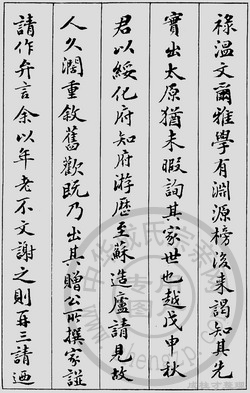 祿溫文爾雅學有淵源榜後来謁知其先
實出太原猶未暇詢其家世也越戊申秋
君以綏化府知府游歷至蘇造廬請見故
人久濶重敘舊歡既乃出其贈公所撰家譜
請作弁言余以年老不文謝之則再三請迺